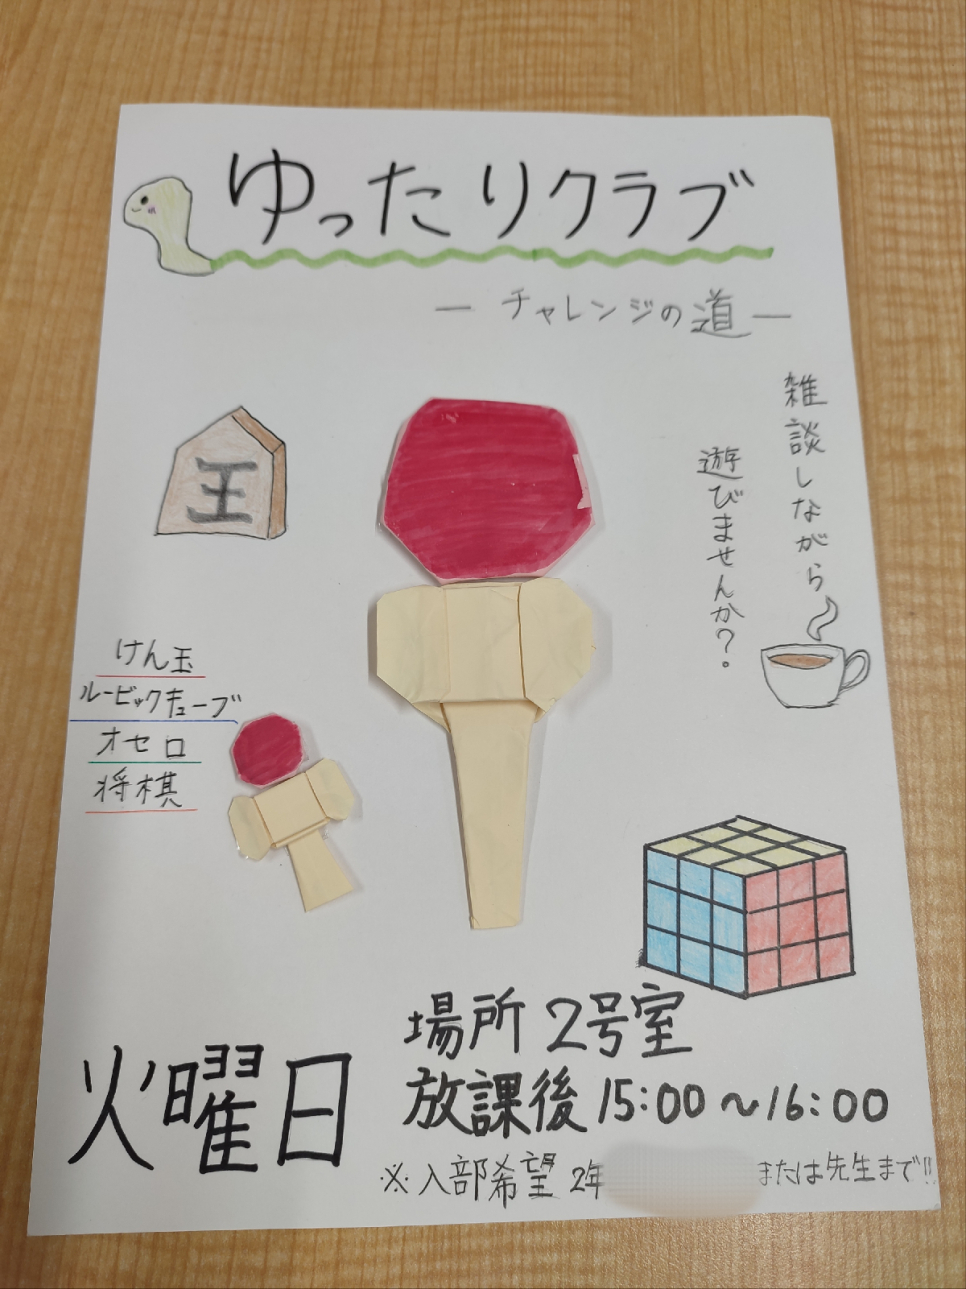 ゆったりクラブ
― チャレンジの道 ―
王
雑談しながら
遊びませんか?
けん玉
ルービックキューブ
オセロ
将棋
火曜日
場所 2号室
放課後 15:00～16:00
※入部希望 2年
または先生まで!!